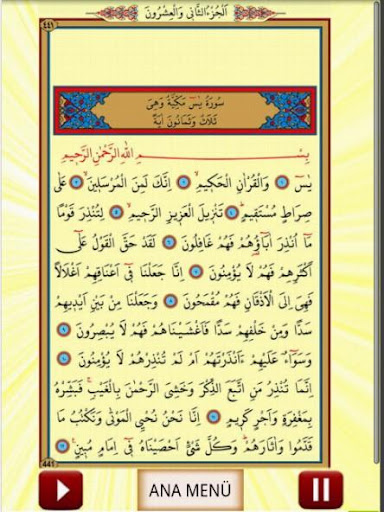 اَلْجُزْءُ الثَّانِي وَالْعِشْرُونَ
٤٤١
سُورَةُ يٰسٓ مَكِّيَّةٌ وَهِيَ
ثَلَاثٌ وَثَمَانُونَ اٰيَةً
بِسْمِ اللّٰهِ الرَّحْمٰنِ الرَّحِيمِ
يٰسٓ ۝ وَالْقُرْاٰنِ الْحَكِيمِۙ ۝ اِنَّكَ لَمِنَ الْمُرْسَلِينَۙ ۝ عَلٰى
صِرَاطٍ مُسْتَقِيمٍۜ ۝ تَنْزِيلَ الْعَزِيزِ الرَّحِيمِۙ ۝ لِتُنْذِرَ قَوْمًا
مَٓا اُنْذِرَ اٰبَٓاؤُ۬هُمْ فَهُمْ غَافِلُونَ ۝ لَقَدْ حَقَّ الْقَوْلُ عَلٰٓى
اَكْثَرِهِمْ فَهُمْ لَا يُؤْمِنُونَ ۝ اِنَّا جَعَلْنَا فِٓي اَعْنَاقِهِمْ اَغْلَالًا
فَهِيَ اِلَى الْاَذْقَانِ فَهُمْ مُقْمَحُونَ ۝ وَجَعَلْنَا مِنْ بَيْنِ اَيْدِيهِمْ
سَدًّا وَمِنْ خَلْفِهِمْ سَدًّا فَاَغْشَيْنَاهُمْ فَهُمْ لَا يُبْصِرُونَ ۝
وَسَوَٓاءٌ عَلَيْهِمْ ءَاَنْذَرْتَهُمْ اَمْ لَمْ تُنْذِرْهُمْ لَا يُؤْمِنُونَ ۝
اِنَّمَا تُنْذِرُ مَنِ اتَّبَعَ الذِّكْرَ وَخَشِيَ الرَّحْمٰنَ بِالْغَيْبِۚ فَبَشِّرْهُ
بِمَغْفِرَةٍ وَاَجْرٍ كَرِيمٍ ۝ اِنَّا نَحْنُ نُحْيِ الْمَوْتٰى وَنَكْتُبُ مَا
قَدَّمُوا وَاٰثَارَهُمْۜ وَكُلَّ شَيْءٍ اَحْصَيْنَاهُ فِٓي اِمَامٍ مُبِينٍ۟ ۝
441
ANA MENÜ